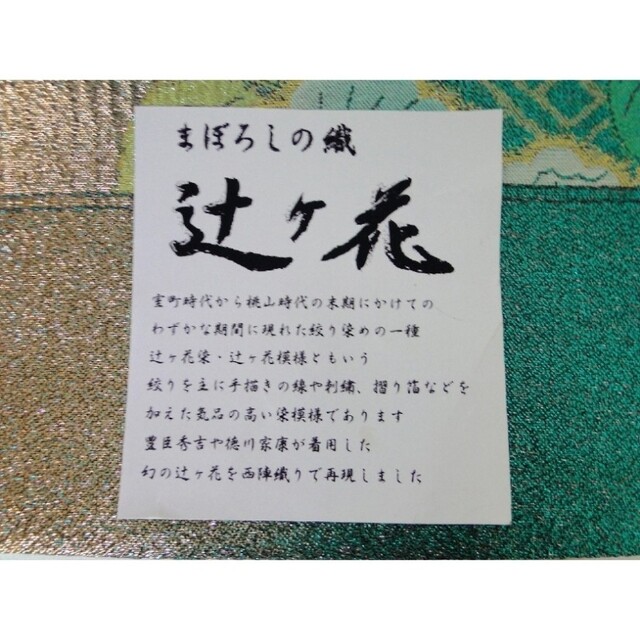 まぼろしの織
辻ヶ花
室町時代から桃山時代の末期にかけての
わずかな期間に現れた絞り染めの一種
辻ヶ花染・辻ヶ花模様ともいう
絞りを主に手描きの線や刺繍、摺り箔などを
加えた気品の高い染模様であります
豊臣秀吉や徳川家康が着用した
幻の辻ヶ花を西陣織りで再現しました